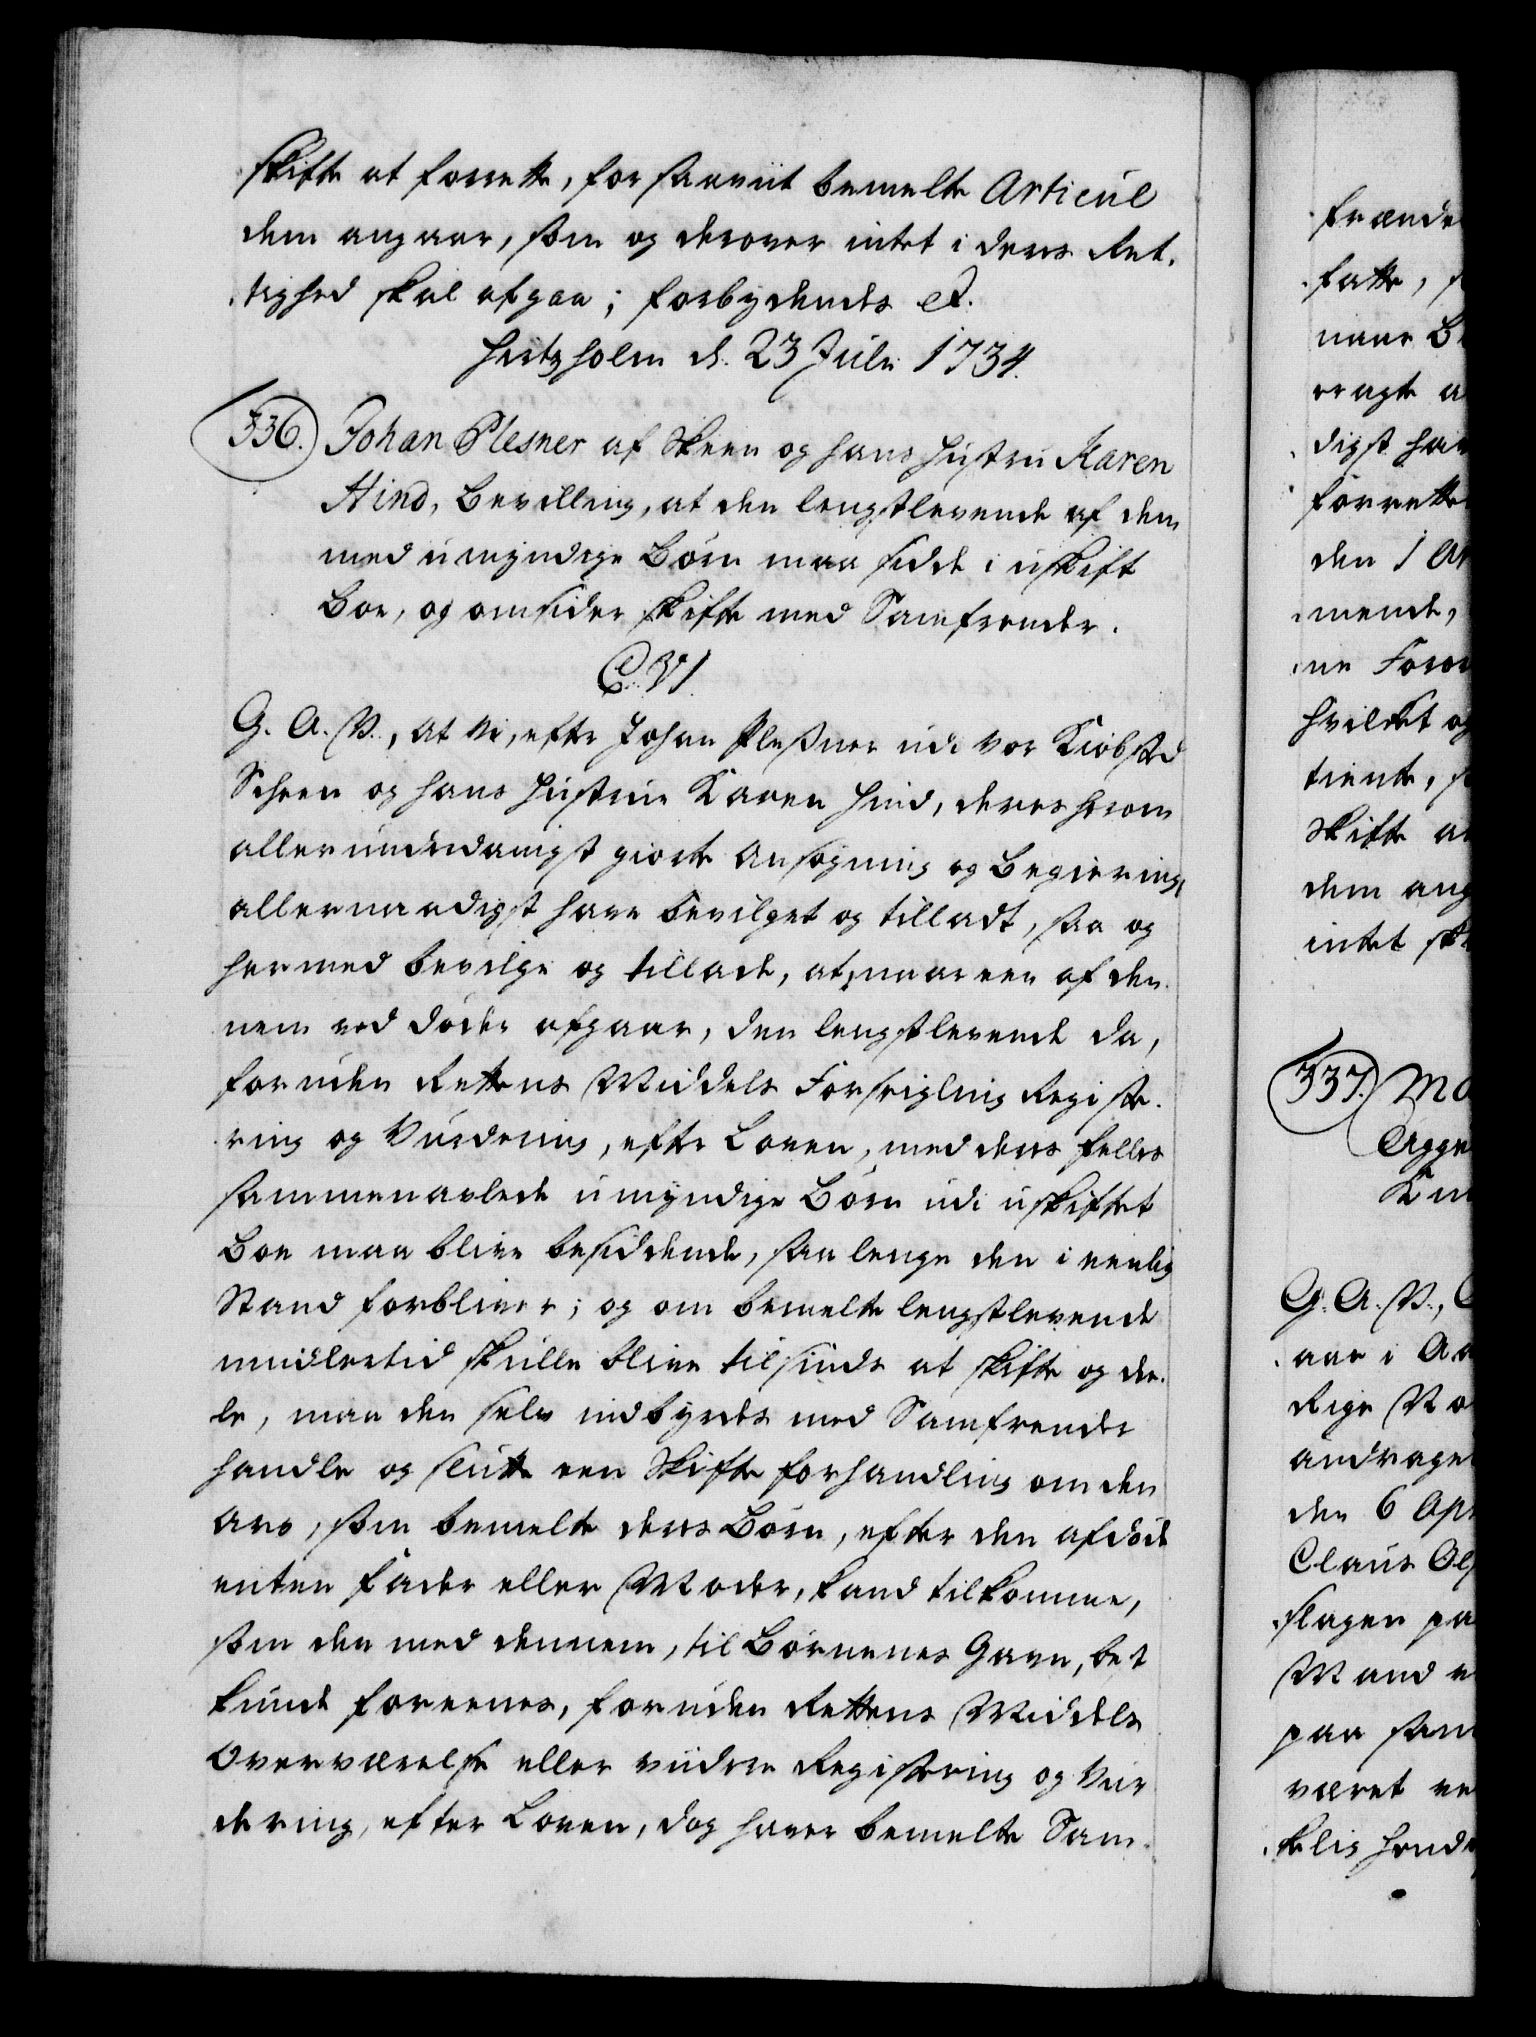 skifte at forrette, for saaviit bemelte Articul
dem angaar, som og derover intet i deres Ret-
tighed skal afgaa; forbydendes etc.
Hertzholm d. 23 Julii 1734.
336. Johan Plesner af Skeen og hans Hustru Karen
Hind, Bevilling, at den lengstlevende af dem
med umyndige Børn maa sidde i uskift
Boe, og omsider skifte med Samfrender.
C. VI.
G. A. V., at Vi, efter Johan Plesner udi vor Kiøbstd
Scheen og hans Hustrue Karen Hind, deres herom
allerunderdanigst giorte Ansøgning og Begiering,
allernaadigst have bevilget og tilladt, saa og
hermed bevilge og tillade, at, naar een af den-
nem ved døden afgaar, den lengstlevende da,
foruden Rettens Middels Forsegling Registe-
ring og Vurdering, efter Loven, med deres felles
sammenavlede umyndige Børn udi uskiftet
Boe maa blive besiddende, saa lenge den i eenlig
Stand forbliver; og om bemelte lengstlevende
midlertid skulle blive tilsinds at skifte og dee-
le, maa den selv indbyrdes med Samfrender
handle og slutte een Skifte forhandling om den
Arv, som bemelte deres Børn, efter den afdøde
enten Fader eller Moder, kand tilkomme,
som den med dennem, til Børnenes Gavn, best
kunde foreenes, foruden Rettens Middels
Overværelse eller viidere Registering og Vur
dering, efter Loven, dog haver bemelte Sam-
frænde
fatte, s
naar B
ragte a
digst hav
forrette
den 1 Ar
mente,
ne Foror
hvilket og
tiente, s
Skifte a
dem ang
intet sk
337. Ma
Agge
G. A. V.,
aar i Aa
Rige No
andrage
den 6 Apr
Claus Ol
slagen pa
Mand
paa sam
været ve